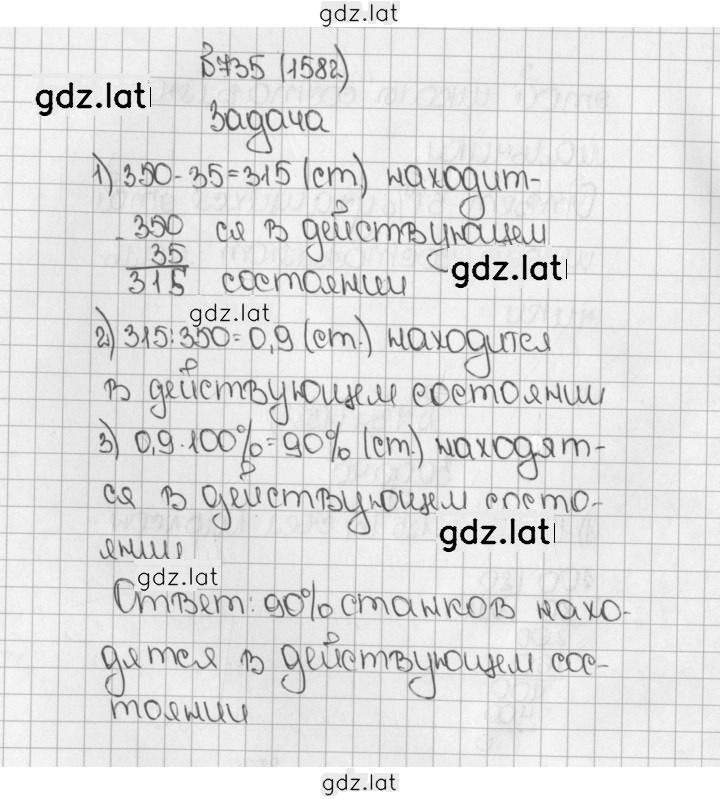 gdz.lat
В 735 (1582)
gdz.lat
Задача
1) 350-35=315 (ст.) находит-
- 350 ся в действующем
35
gdz.lat
315 состоянии
gdz.lat
2) 315:350=0,9 (ст.) находится
в действующем состоянии
3) 0,9·100%=90% (ст.) находят-
ся в действующем состо-
gdz.lat
янии
gdz.lat
Ответ: 90% станков нахо-
дятся в действующем сос-
тоянии
gdz.lat